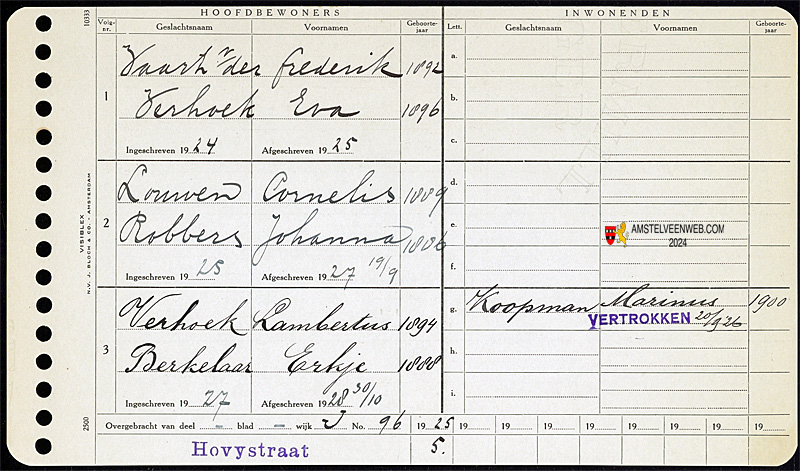 HOOFDBEWONERS INWONENDEN
Volg-nr. Geslachtsnaam Voornamen Geboorte-jaar Lett. Geslachtsnaam Voornamen Geboorte-jaar
10333
1
Vaart v/der Frederik 1892
Verhoek Eva 1896
Ingeschreven 1924 Afgeschreven 1925
a.
b.
c.
2
Louwen Cornelis 1889
Robbers Johanna 1886
Ingeschreven 1925 Afgeschreven 1927 19/9
d.
e.
f.
AMSTELVEENWEB.COM
2024
VISIBLEX
N.V. J. BLOCH & CO. - AMSTERDAM
3
Verhoek Lambertus 1894
Berkelaar 1888
Ingeschreven 1927 Afgeschreven 1928 30/10
g. Koopman Marinus 1900
VERTROKKEN 20/9 26
h.
i.
2500
Overgebracht van deel – blad – wijk J No. 96 1925 19 19 19 19 19 19 19 19
Hovystraat 5.